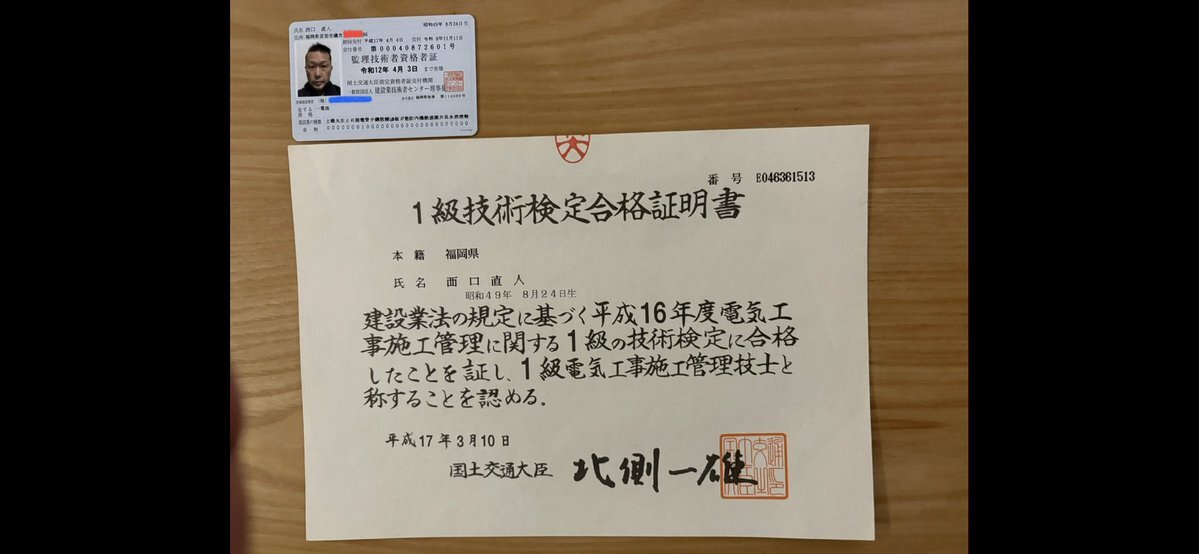 氏名 西口 直人
昭和49年 8月24日生
住所 福岡県宮若市磯光
初回交付 平成17年 4月 4日 交付 令和 6年11月11日
交付番号 第 00040872601 号
監理技術者資格者証
令和12年 4月 3日 まで有効
国土交通大臣指定資格者証交付機関
一般財団法人 建設業技術者センター理事長
有する資格 一電施
建設業の種類
有・無
番号 E046361513
1級技術検定合格証明書
本籍 福岡県
氏名 西口直人
昭和49年 8月24日生
建設業法の規定に基づく平成16年度電気工
事施工管理に関する1級の技術検定に合格
したことを証し、1級電気工事施工管理技士と
称することを認める.
平成17年3月10日
国土交通大臣 北側一雄